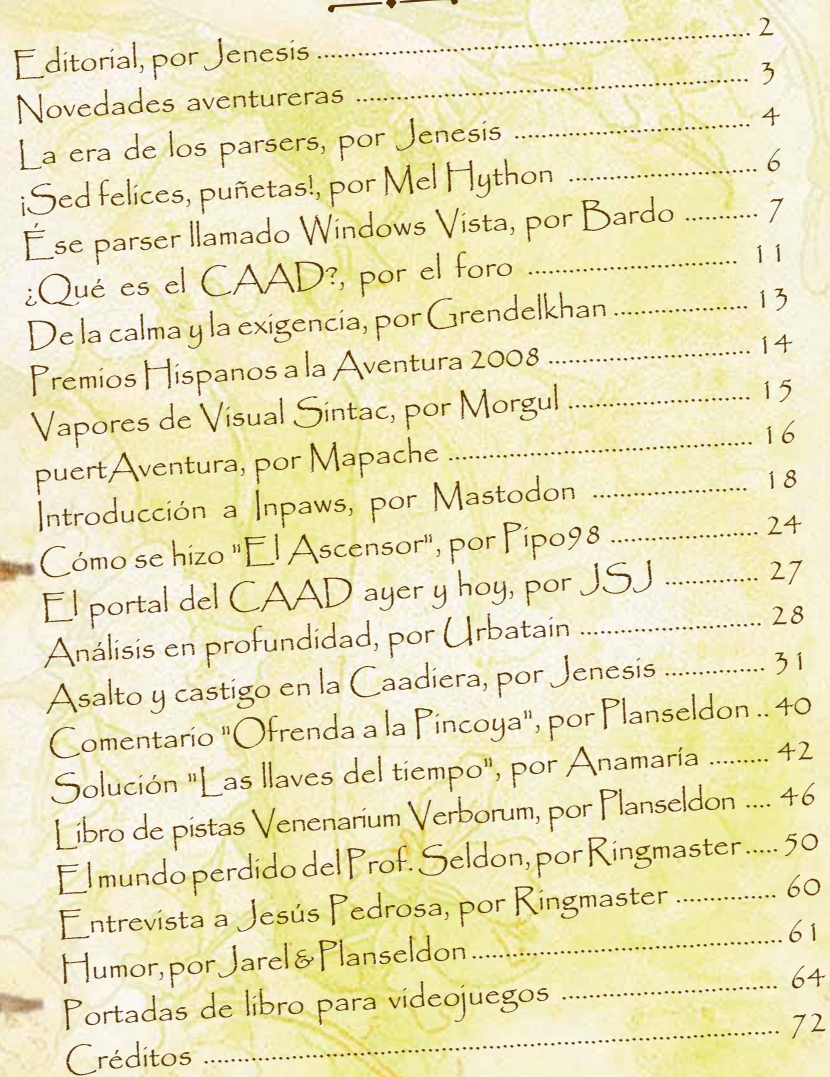 Editorial, por Jenesis ........................................................ 2
Novedades aventureras ........................................................ 3
La era de los parsers, por Jenesis ................................. 4
¡Sed felices, puñetas!, por Mel Hython .......................... 6
Ése parser llamado Windows Vista, por Bardo .......... 7
¿Qué es el CAAD?, por el foro .............................. 11
De la calma y la exigencia, por Grendelkhan .................. 13
Premios Hispanos a la Aventura 2008 ........................... 14
Vapores de Visual Sintac, por Morgul ......................... 15
puertAventura, por Mapache ........................................ 16
Introducción a Inpaws, por Mastodon ..................... 18
Cómo se hizo "El Ascensor", por Pipo98 ................... 24
El portal del CAAD ayer y hoy, por JSJ ............ 27
Análisis en profundidad, por Urbatain ........................... 28
Asalto y castigo en la Caadiera, por Jenesis ............. 31
Comentario "Ofrenda a la Pincoya", por Planseldon .. 40
Solución "Las llaves del tiempo", por Anamaría ......... 42
Libro de pistas Venenarium Verborum, por Planseldon .... 46
El mundo perdido del Prof. Seldon, por Ringmaster ..... 50
Entrevista a Jesús Pedrosa, por Ringmaster ............. 60
Humor, por Jarel & Planseldon ........................................ 61
Portadas de libro para videojuegos ............................. 64
Créditos .............................................................................. 72